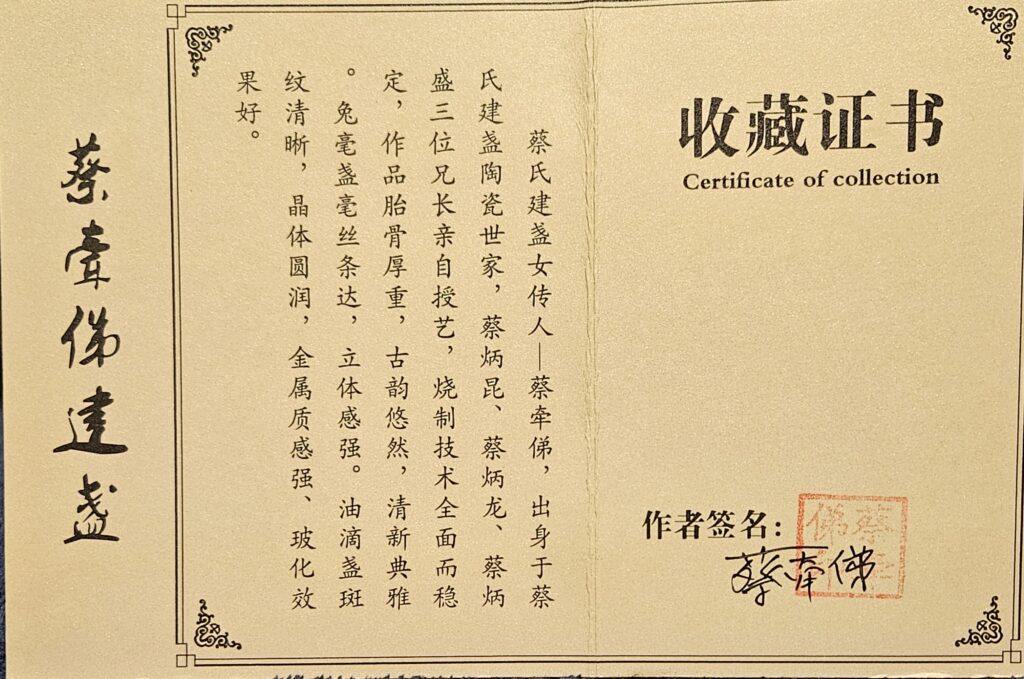 收藏证书
Certificate of collection
作者签名：
蔡牵俤
蔡氏建盏女传人—蔡牵俤，出身于蔡
氏建盏陶瓷世家，蔡炳昆、蔡炳龙、蔡炳
盛三位兄长亲自授艺，烧制技术全面而稳
定，作品胎骨厚重，古韵悠然，清新典雅
。兔毫盏毫丝条达，立体感强。油滴盏斑
纹清晰，晶体圆润，金属质感强、玻化效
果好。
蔡牽俤建盏